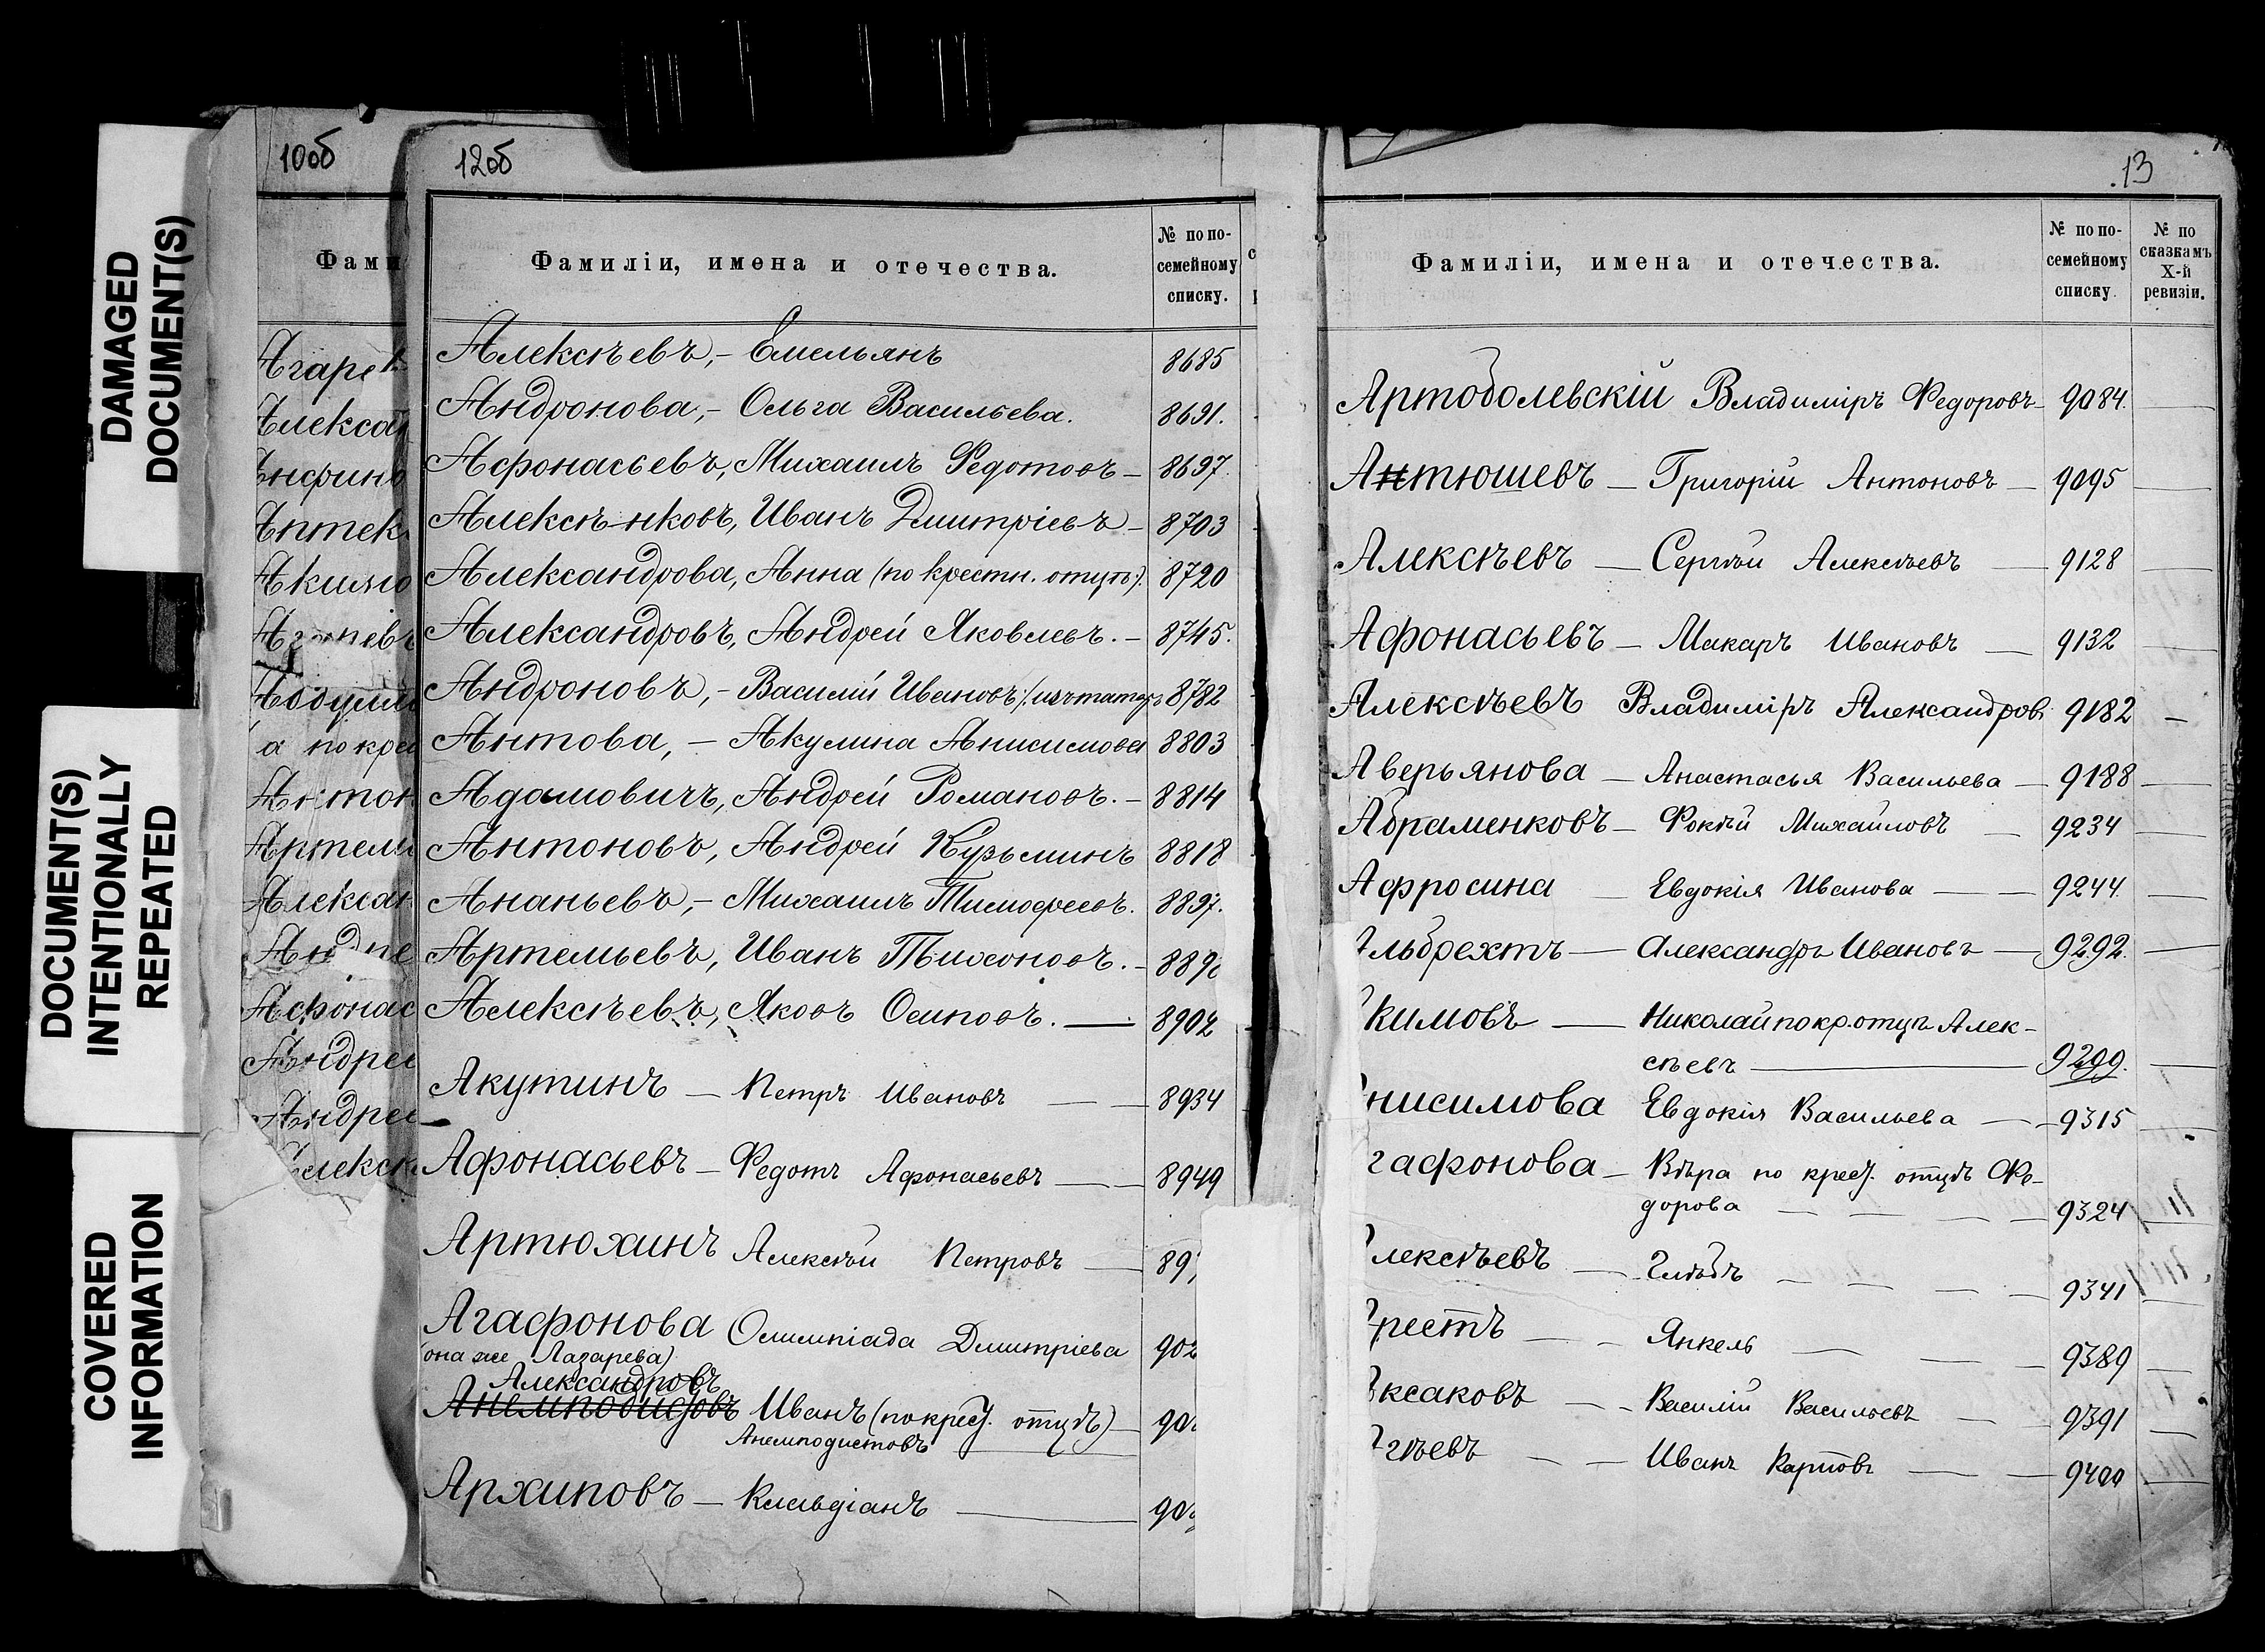 DAMAGED
DOCUMENT(S)
DOCUMENT(S)
INTENTIONALLY
REPEATED
COVERED
INFORMATION
10об
Фами
Агаре
Алексан
Анфино
Аптек
Акимо
а по крес
Антон
Артемь
Алексан
Андре
Афонас
Андрее
Андрее
Алекс
12об
Фамиліи, имена и отечества.
№ по по-
семейному
списку.
Алексѣевъ, - Емельянъ 8685
Андронова, - Ольга Васильева. 8691.
Афонасьевъ, Михаилъ Федотовъ - 8697.
Алексѣенковъ, Иванъ Дмитріевъ - 8703
Александрова, Анна (по крестн. отцѣ). 8720
Александровъ, Андрей Яковлевъ. - 8745.
Андроновъ, - Василій Ивановъ (изъ татаръ 8782
Антова, - Акулина Анисимова 8803
Адамовичъ, Андрей Романовъ. - 8814
Антоновъ, Андрей Кузьминъ 8818
Ананьевъ, - Михаилъ Тимофеевъ. 8897.
Артемьевъ, Иванъ Тихоновъ. - 889
Алексѣевъ, Яковъ Осиповъ. — 8902
Акутинъ — Петръ Ивановъ — 8934
Афонасьевъ — Федотъ Афонасьевъ — 8949
Артюхинъ Алексѣй Петровъ — 89
Агафонова Олимпіада Дмитріева 902
(она же Лазарева)
Александровъ
Анемподистовъ Иванъ (по крест. отцѣ) — 90
Анемподистовъ
Архиповъ — Клавдіанъ — 90
13
Фамиліи, имена и отечества.
№ по по-
семейному
списку.
№ по
сказкамъ
X-й
ревизіи.
Артоболевскій Владиміръ Федоровъ 9084.
Антюшевъ — Григорій Антоновъ — 9095
Алексѣевъ — Сергѣй Алексѣевъ — 9128
Афонасьевъ — Макаръ Ивановъ — 9132
Алексѣевъ Владиміръ Александров 9182
Аверьянова — Анастасья Васильева — 9188
Абраменковъ — Фокѣй Михайловъ — 9234
Афросина — Евдокія Иванова — 9244.
льбрехтъ — Александръ Ивановъ — 9292.
кимовъ — Николай по кр. отцѣ Алек-
сѣевъ — 9299.
нисимова Евдокія Васильева — 9315
гафонова — Вѣра по крест. отцѣ Фе-
дорова — 9324
лексѣевъ — Глѣбъ — 9341
рестъ — Янкель — 9389
ксаковъ — Василій Васильевъ — 9391
гѣевъ — Иванъ Карповъ — 9400